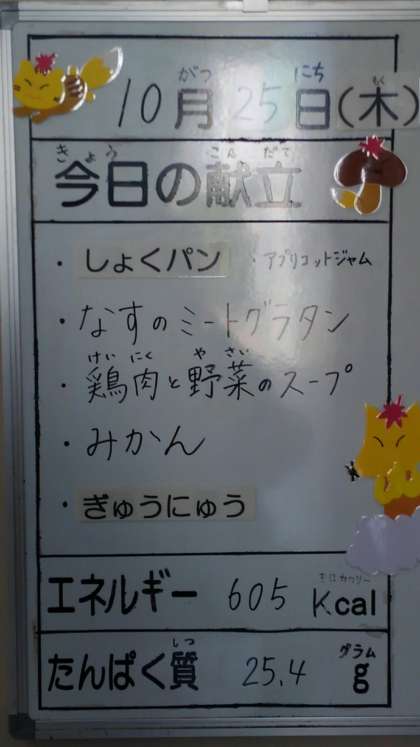 10月25日(木)
がつ にち もく
きょう こんだて
今日の献立
・しょくパン ・アプリコットジャム
・なすのミートグラタン
けいにく やさい
・鶏肉と野菜のスープ
・みかん
・ぎゅうにゅう
キロカロリー
エネルギー 605 Kcal
しつ グラム
たんぱく質 25.4 g